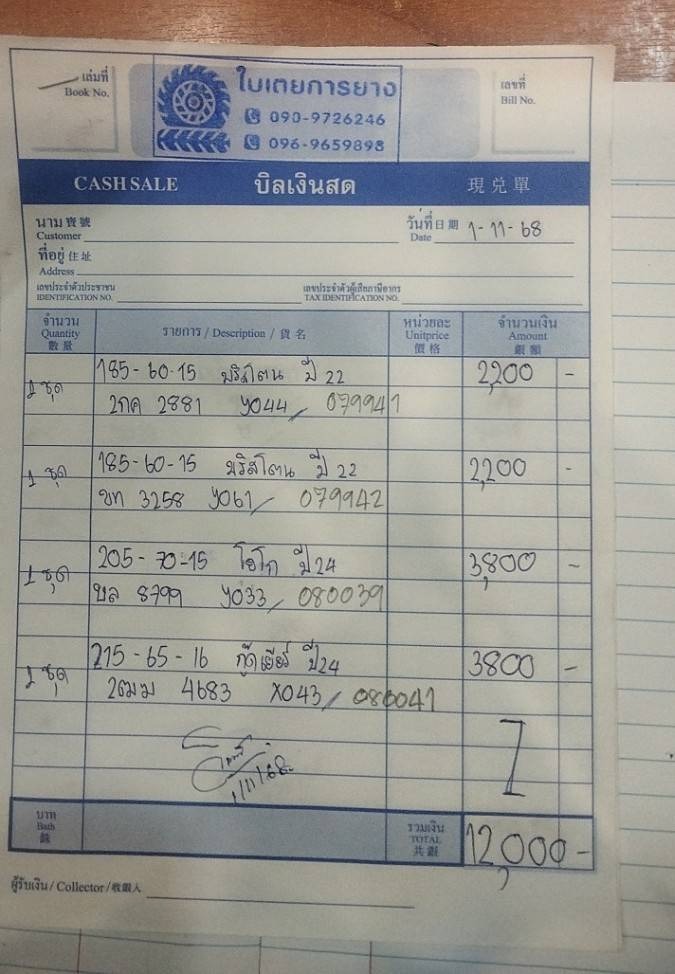 เล่มที่
Book No.
ใบเตยการยาง
090-9726246
096-9659898
เลขที่
Bill No.
CASH SALE บิลเงินสด 現兑單
นาม 寶號
Customer
วันที่ 日期
Date 1-11-68
ที่อยู่ 住址
Address
เลขประจำตัวประชาชน
IDENTIFICATION NO.
เลขประจำตัวผู้เสียภาษีอากร
TAX IDENTIFICATION NO.
จำนวน
Quantity
數量
รายการ / Description / 貨名
หน่วยละ
Unitprice
價格
จำนวนเงิน
Amount
銀額
1 ชุด 185-60-15 บริสโตน ปี 22 2,200 -
2กค 2881 YO44/ 079941
1 ชุด 185-60-15 บริสโตน ปี 22 2,200 -
ขท 3258 YO61/ 079942
1 ชุด 205-70-15 โอโก ปี 24 3,800 -
บล 8799 YO33/ 080039
1 ชุด 215-65-16 กู๊ดเยียร์ ปี 24 3800 -
2ฒฆ 4683 XO43/ 080041
1/11/68
บาท
Bath
銖
รวมเงิน
TOTAL
共銀
12,000-
ผู้รับเงิน / Collector / 收銀人